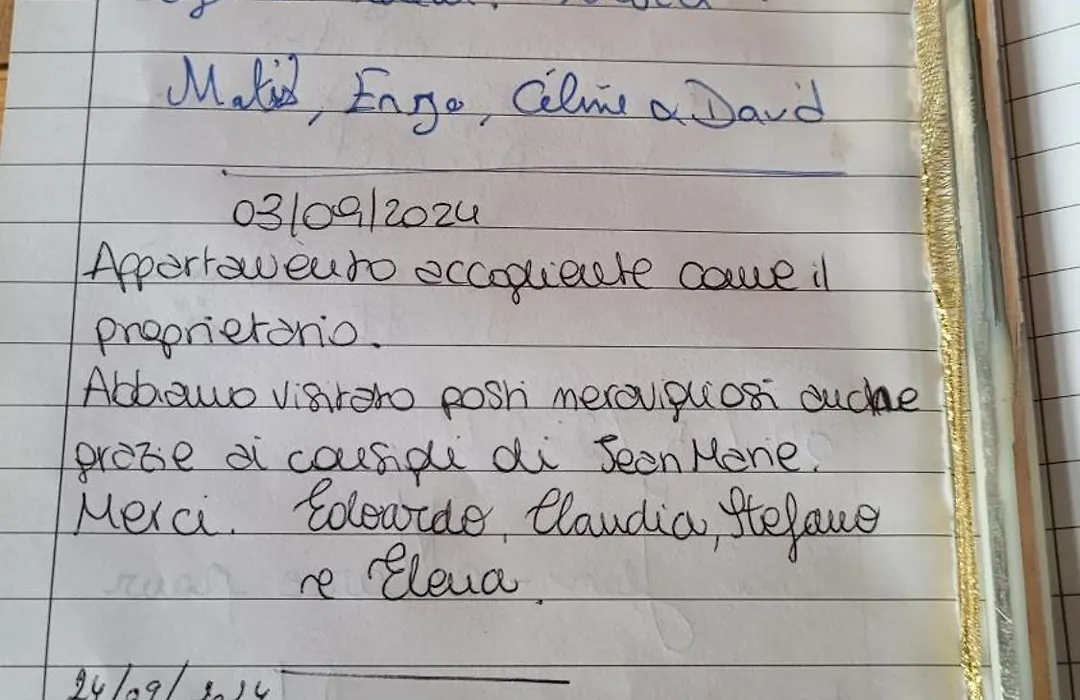 Matis, Enzo, Céline & David
03/09/2024
Appartamento accogliente come il
proprietario.
Abbiamo visitato posti meravigliosi anche
grazie ai consigli di Jean Marie.
Merci. Edoardo, Claudia, Stefano
e Elena.
24/09/2024